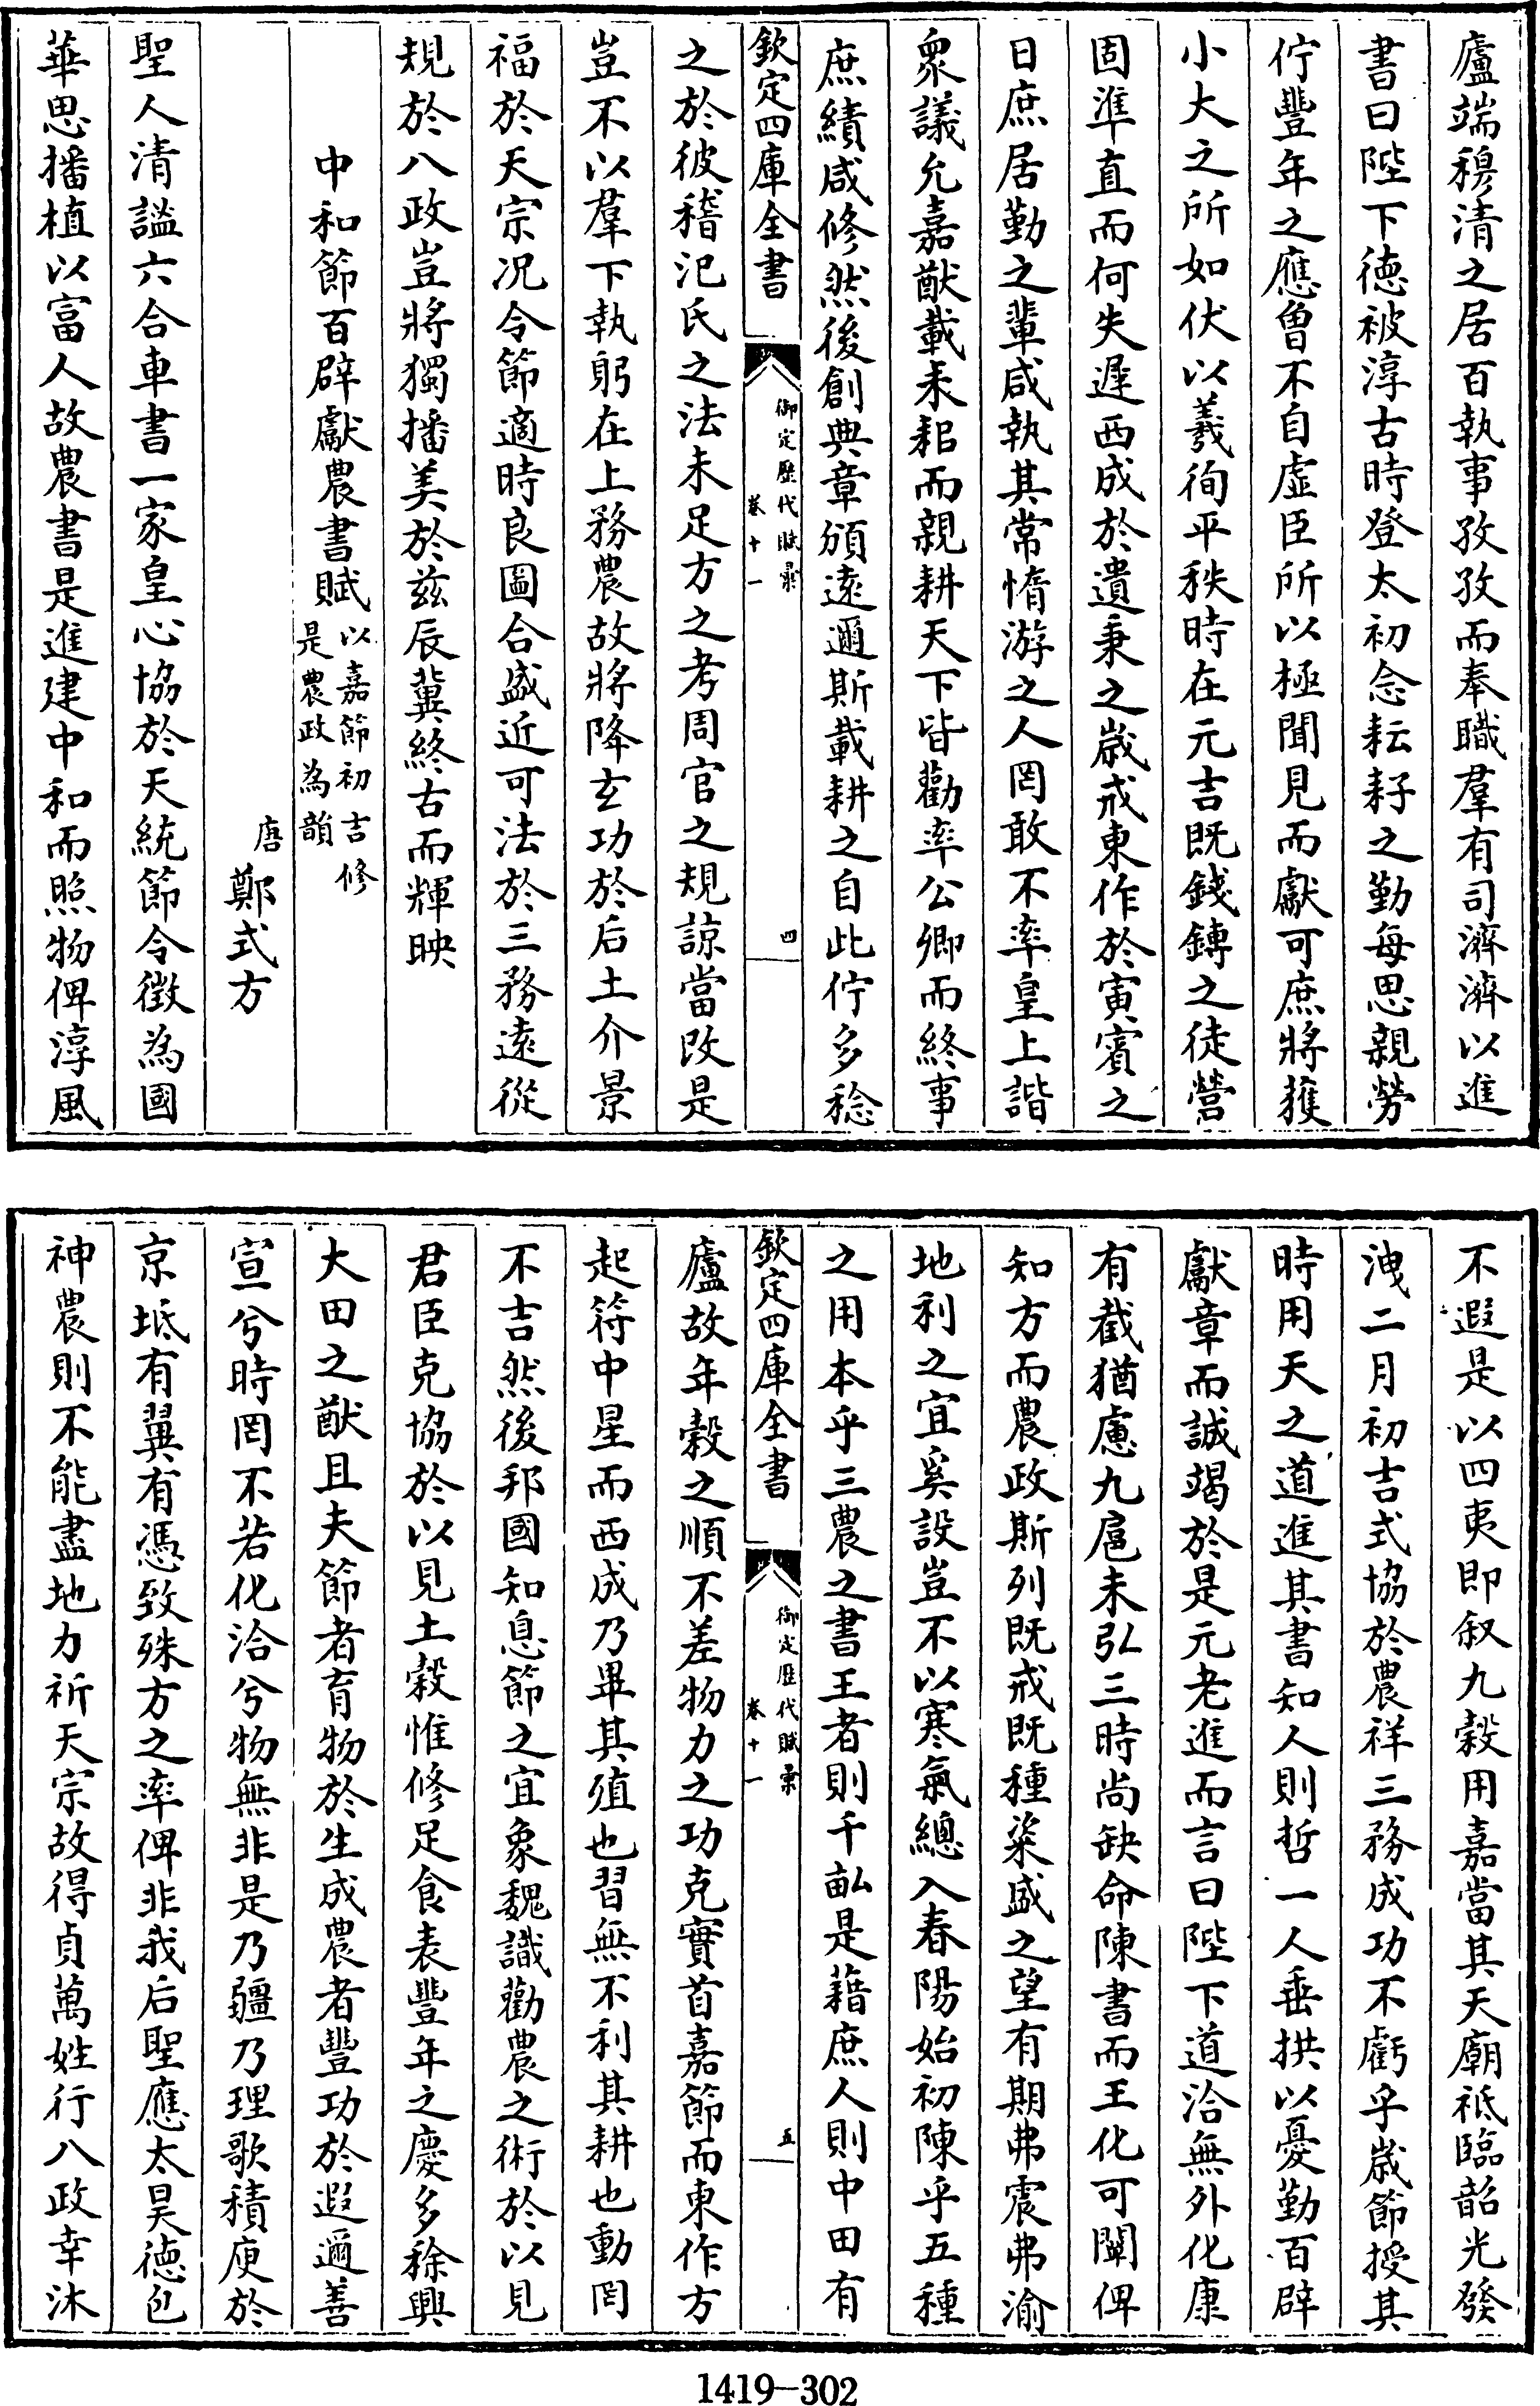 廬端穆清之居百執事孜孜而奉職羣有司濟濟以進
書曰陛下徳被淳古時登太初念耘耔之勤每思親勞
佇豐年之應曾不自虛臣所以極聞見而獻可庶將獲
小大之所如伏以羲徇平秩時在元吉既錢鎛之徒營
固準直而何失遲西成於遺秉之嵗戒東作於寅賓之
日庶居勤之輩咸執其常惰游之人罔敢不率皇上諧
衆議允嘉猷載耒耜而親耕天下皆勸率公卿而終事
庶績咸修然後創典章頒遠邇斯載耕之自此佇多稔
欽定四庫全書
御定歷代賦彙
卷十一
四
之於彼稽汜氏之法未足方之考周官之規諒當改是
豈不以羣下執躬在上務農故將降玄功於后土介景
福於天宗况令節適時良圖合盛近可法於三務遠從
規於八政豈將獨播美於兹辰冀終古而輝映
中和節百辟獻農書賦以嘉節初吉修
是農政為韻
唐鄭式方
聖人清謐六合車書一家皇心協於天統節令徵為國
華思播植以富人故農書是進建中和而照物俾淳風
不遐是以四夷即叙九穀用嘉當其天廟祗臨韶光發
洩二月初吉式協於農祥三務成功不虧乎嵗節授其
時用天之道進其書知人則哲一人垂拱以憂勤百辟
獻章而誠竭於是元老進而言曰陛下道洽無外化康
有截猶慮九扈未弘三時尚缺命陳書而王化可闡俾
知方而農政斯列既戒既種粢盛之望有期弗震弗渝
地利之宜奚設豈不以寒氣總入春陽始初陳乎五種
之用本乎三農之書王者則千畝是藉庶人則中田有
欽定四庫全書
御定歷代賦彙
卷十一
五
廬故年穀之順不差物力之功克實首嘉節而東作方
起符中星而西成乃畢其殖也習無不利其耕也動罔
不吉然後邦國知息節之宜象魏識勸農之術於以見
君臣克協於以見土穀惟修足食表豐年之慶多稌興
大田之猷且夫節者育物於生成農者豐功於遐邇善
宣兮時罔不若化洽兮物無非是乃疆乃理歌積庾於
京坻有翼有憑致殊方之率俾非我后聖應太昊徳包
神農則不能盡地力祈天宗故得貞萬姓行八政幸沐
1419-302